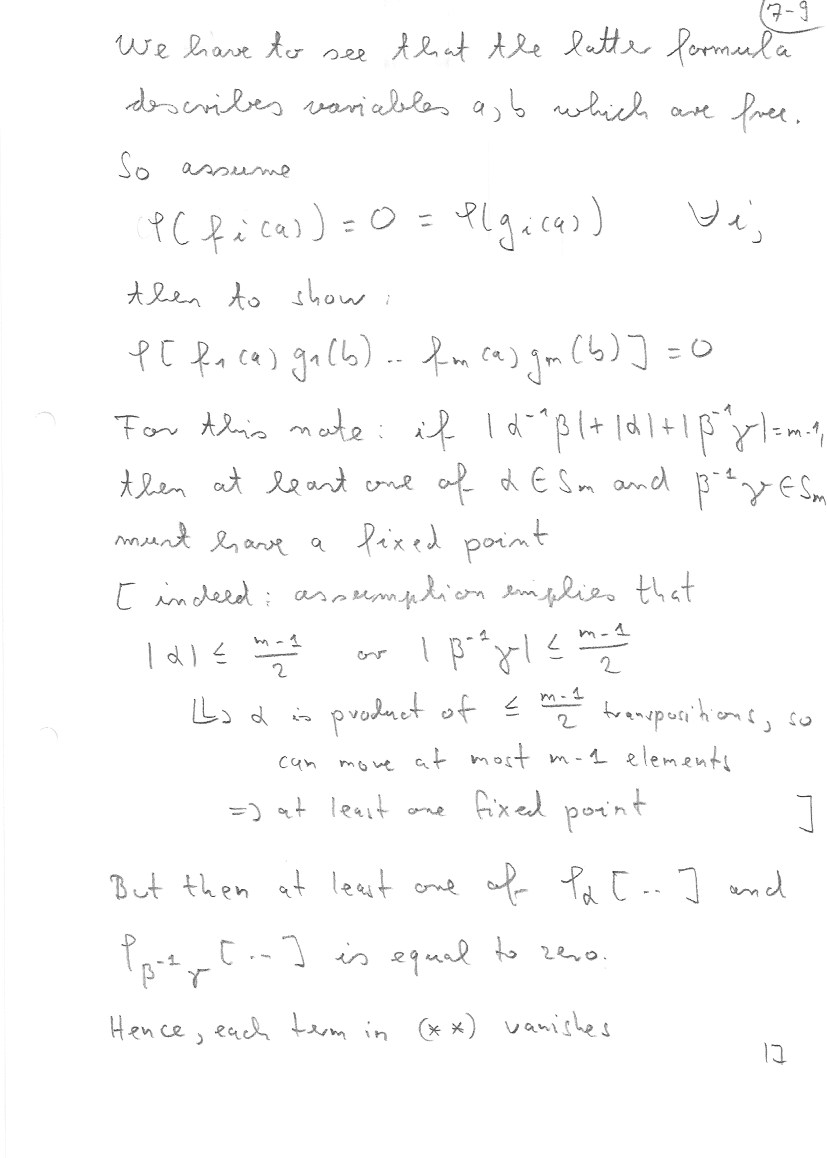 7-9
We have to see that the latter formula
describes variables a, b which are free.
So assume
φ(f_i(a)) = 0 = φ(g_i(a)) ∀ i,
then to show:
φ[f_1(a) g_1(b) .. f_m(a) g_m(b)] = 0
For this note: if |α^{-1}β| + |α| + |β^{-1}γ| = m-1,
then at least one of α ∈ S_m and β^{-1}γ ∈ S_m
must have a fixed point
[ indeed: assumption implies that
|α| ≤ \frac{m-1}{2} or |β^{-1}γ| ≤ \frac{m-1}{2}
↳ α is product of ≤ \frac{m-1}{2} transpositions, so
can move at most m-1 elements
⇒ at least one fixed point ]
But then at least one of φ_α[..] and
φ_{β^{-1}γ}[..] is equal to zero.
Hence, each term in (**) vanishes